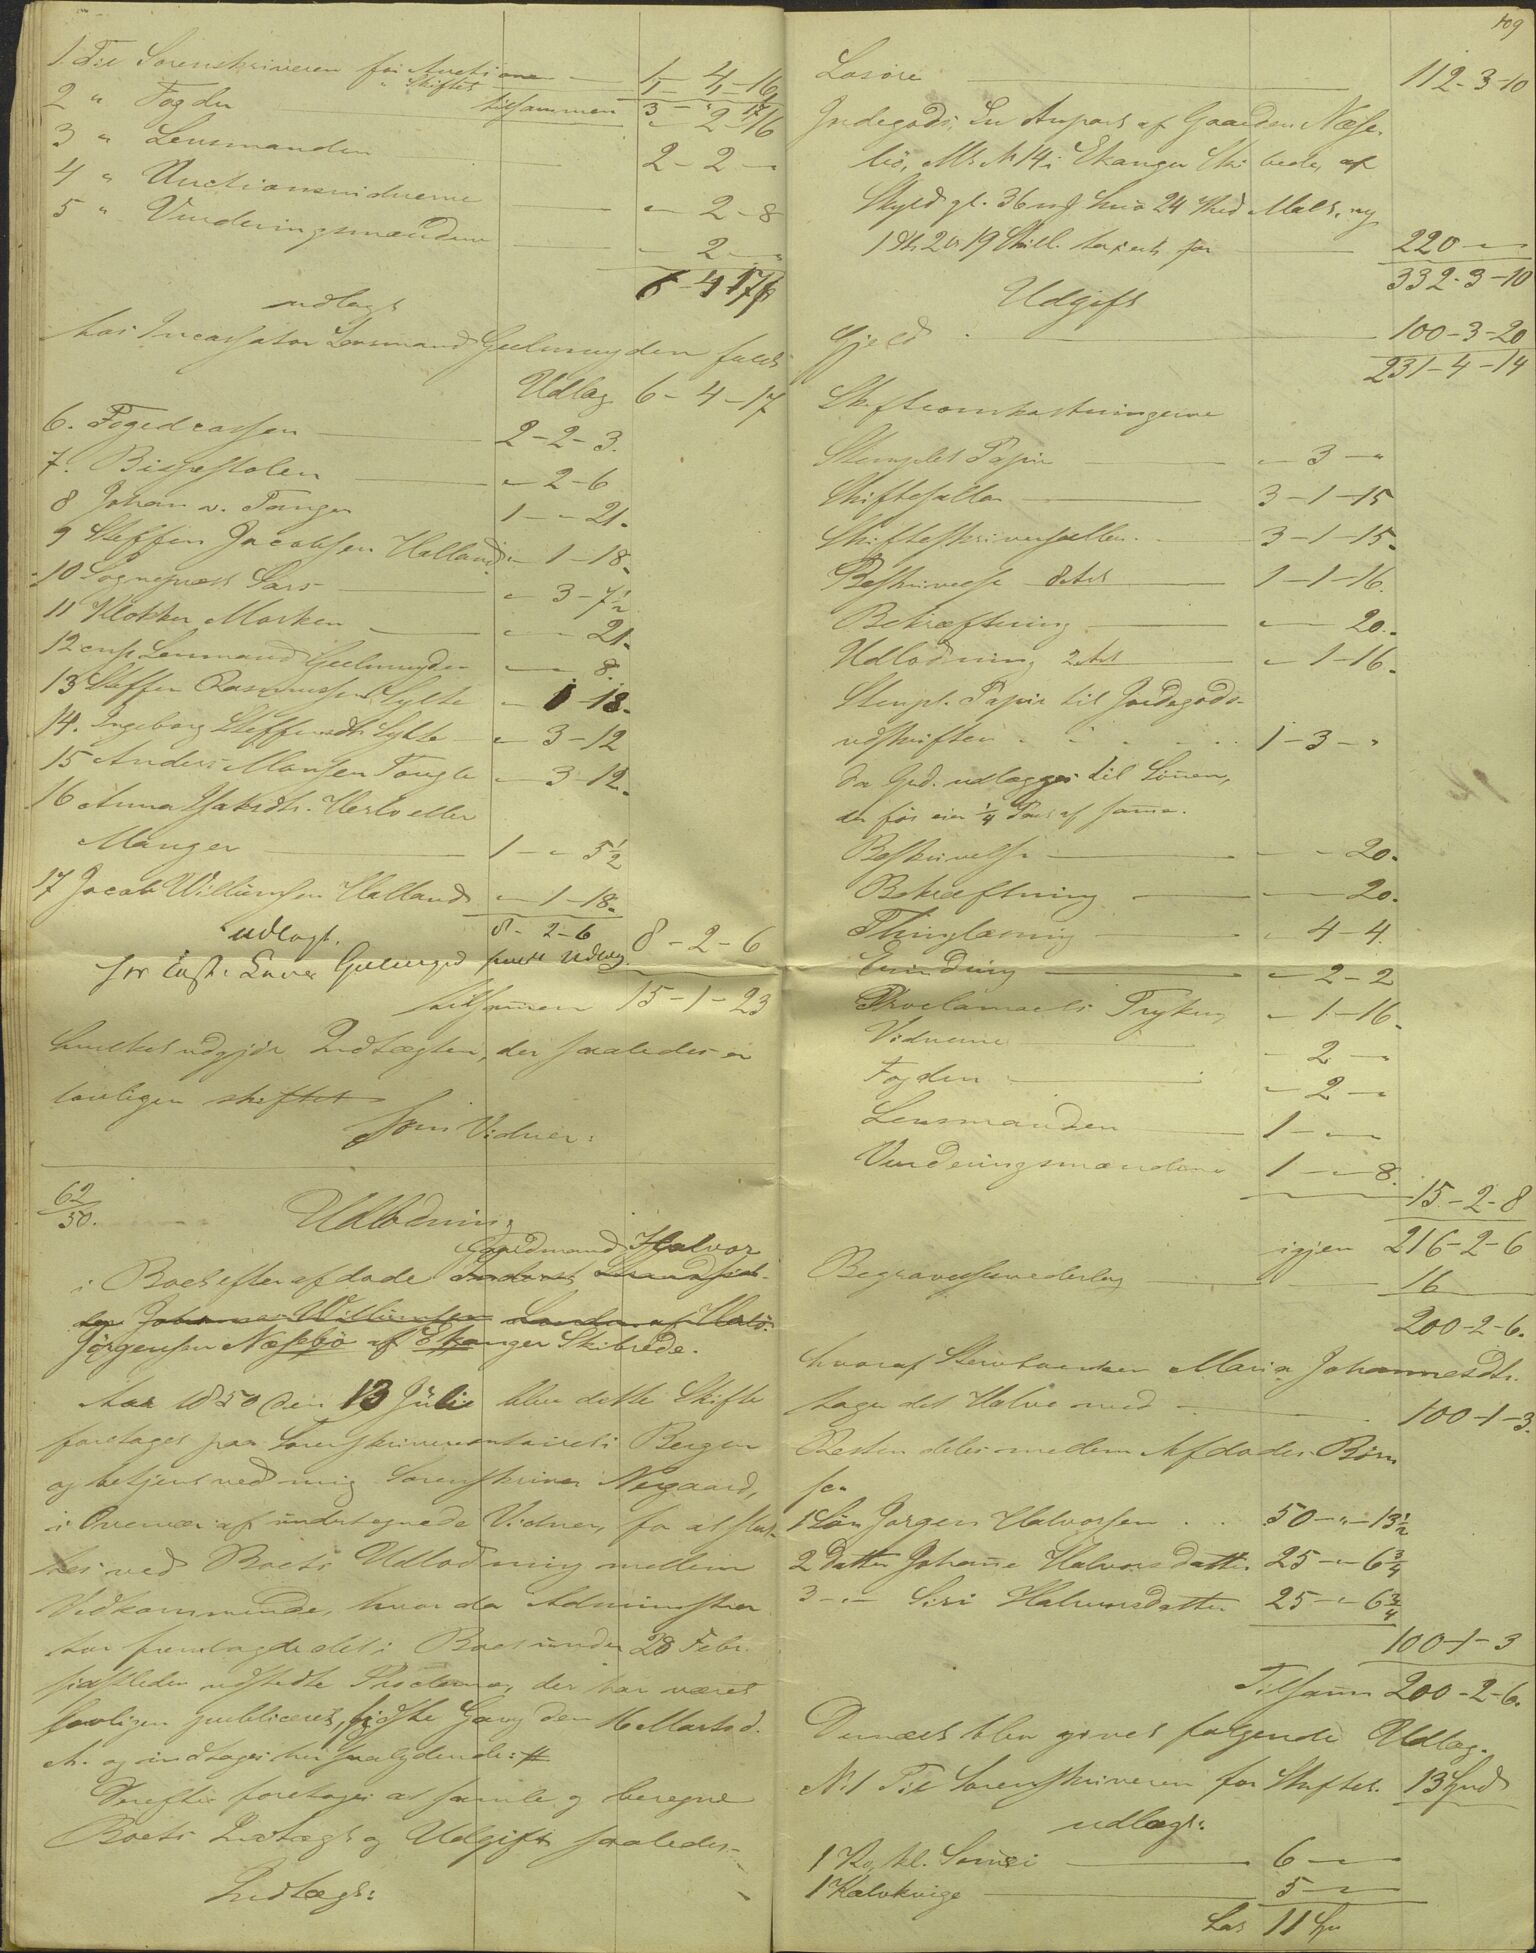 1 Til Sorenskriveren for Auctionen — 1 - 4 - 16
" Skiftet — 1 - 4 - 16
tilsammen 3 - " - 17
2 " Fogden — " - 2 - 16
3 " Lensmanden — 2 - 2 - "
4 " Auctionsvidnerne — " - 2 - 8
5 " Vurderingsmændene — " - 2 - "
6 - 4 - 17
udlagt
hos Incassator Lensmand Geelmuyden fuldt
Udlæg 6 - 4 - 17
6. Fogedcassen — 2 - 2 - 3.
7. Bispestolen — " - 2 - 6
8 Johan v. Tangen 1 - " - 21.
9 Steffen Jacobsen Halland " - 1 - 18.
10 Sognepræst Sars — " - 3 - 7½
11 Klokker Marken — " - " - 21.
12 const. Lensmand Geelmuyden " - " - 8.
13 Steffen Rasmussen Sylte " - 1 - 18.
14. Ingeborg Steffensdtr. Sylte " - 3 - 12
15 Anders Monsen Tougle " - 3 - 12.
16 Anna Isaksdtr. Herlø eller
Manger — 1 - " - 5½
17 Jacob Willumsen Halland " - 1 - 18.
8 - 2 - 6
udlagt.
hos Geelmuyd fuldt Udlæg 8 - 2 - 6
tilsammen 15 - 1 - 23
hvilket udgjør Indtægten, der saaledes er
lovligen skiftet
Som Vidner:
62/50.
Udlodning
Gaardmand Halvor
i Boet efter afdøde
Johannes Willumsen af Herlø.
Jørgensen Næsbø af Ekanger Skibrede.
Aar 1850 den 13 Juli blev dette Skifte
foretaget paa Sorenskrivercontoiret i Bergen
og betjent ved mig Sorenskriver Nergaard,
i Overvær af undertegnede Vidner, for at slut-
tes ved Boets Udlodning mellem
Vedkommende, hvor da Administra-
tor fremlagde det i Boet under 28 Febr.
sidstleden udstedte Proclama, der har været
lovligen publiceret, sidste Gang den 16 Marts d.
A. og indtages her saalydende: #
Derefter foretoges at samle og beregne
Boets Indtægt og Udgift saaledes:
Indtægt:
109
Løsøre — 112 - 3 - 10
Jordegods, En Anpart af Gaarden Næse-
bø, Mt. N 14 i Ekanger Skibrede, af
Skyld gl. 36 mk Smø 24 Kd Malt, ny
1 Dlr. 2 ort 19 Skill. taxeret for — 220 - "
332 - 3 - 10
Udgift
Gjeld — 100 - 3 - 20
231 - 4 - 14
Skifteomkostningerne
Stemplet Papir — " - 3 - "
Skiftesallær — 3 - 1 - 15
Skifteskriversallær. — 3 - 1 - 15.
Beskrivelse 8 Ark — 1 - 1 - 16.
Bekræftning — " - " - 20.
Udlodning 2 Ark — " - 1 - 16.
Stempl. Papir til Jordegods-
udskriften . . . . . 1 - 3 - "
da Jrd. udlægges til Sønnen,
der før eier ¼ Part af samme.
Beskrivelse — " - " - 20.
Bekræftning — " - " - 20.
Thinglæsning — " - 4 - 4.
— " - 2 - 2
Proclamaets Trykn. — " - 1 - 16.
Vidnerne — " - 2 - "
Fogden — " - 2 - "
Lensmanden — 1 - " - "
Vurderingsmændene 1 - " - 8.
15 - 2 - 8
igjen 216 - 2 - 6
Begravelsesvederlag — 16
200 - 2 - 6.
hvoraf Stervboenken Maria Johannesdtr.
tager det Halve med — 100 - 1 - 3.
Resten deles mellem Afdødes Børn
saa
1 Søn Jørgen Halvorsen . . . 50 - " - 13½
2 Datter Johanne Halvorsdatter 25 - " - 6¾
3 - " - Siri Halvorsdatter 25 - " - 6¾
100 - 1 - 3
Tilsamm 200 - 2 - 6.
Dernæst blev givet følgende Udlæg.
N. 1 Til Sorenskriveren for Skiftet. 13 Spd
udlagt:
1 Ko, kl. — 6 - "
1 Kalvkvige — 5 - "
Lat. 11 Sp